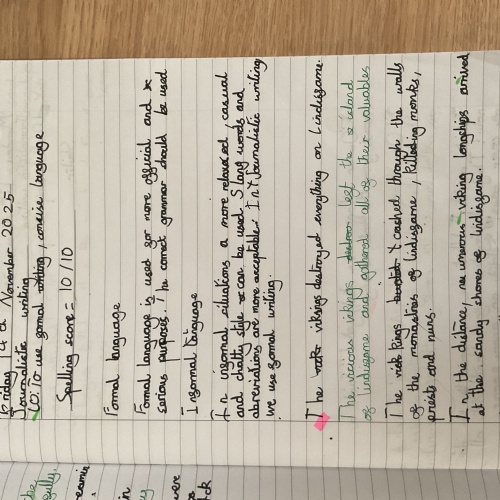 Friday 14th November 2025
Journalistic writing
LO: To use formal writing, concise language
Spelling score = 10/10
Formal language
Formal language is used for more official and
serious purposes. The correct grammar should be used
Informal language
In informal situations a more relaxed, casual
and chatty style can be used. Slang words and
abreviations are more acceptable. In Journalistic writing
we use formal writing.
The vikings destroyed everything on Lindisfarne.
The vicious vikings left the island
of lindisfarne and gathered all of their valuables
The vikings cashed through the walls
of the monastries of lindisfarne, killing monks,
preists and nuns.
In the distance numerous viking longships arrived
at the sandy shores of lindisfarne.
were